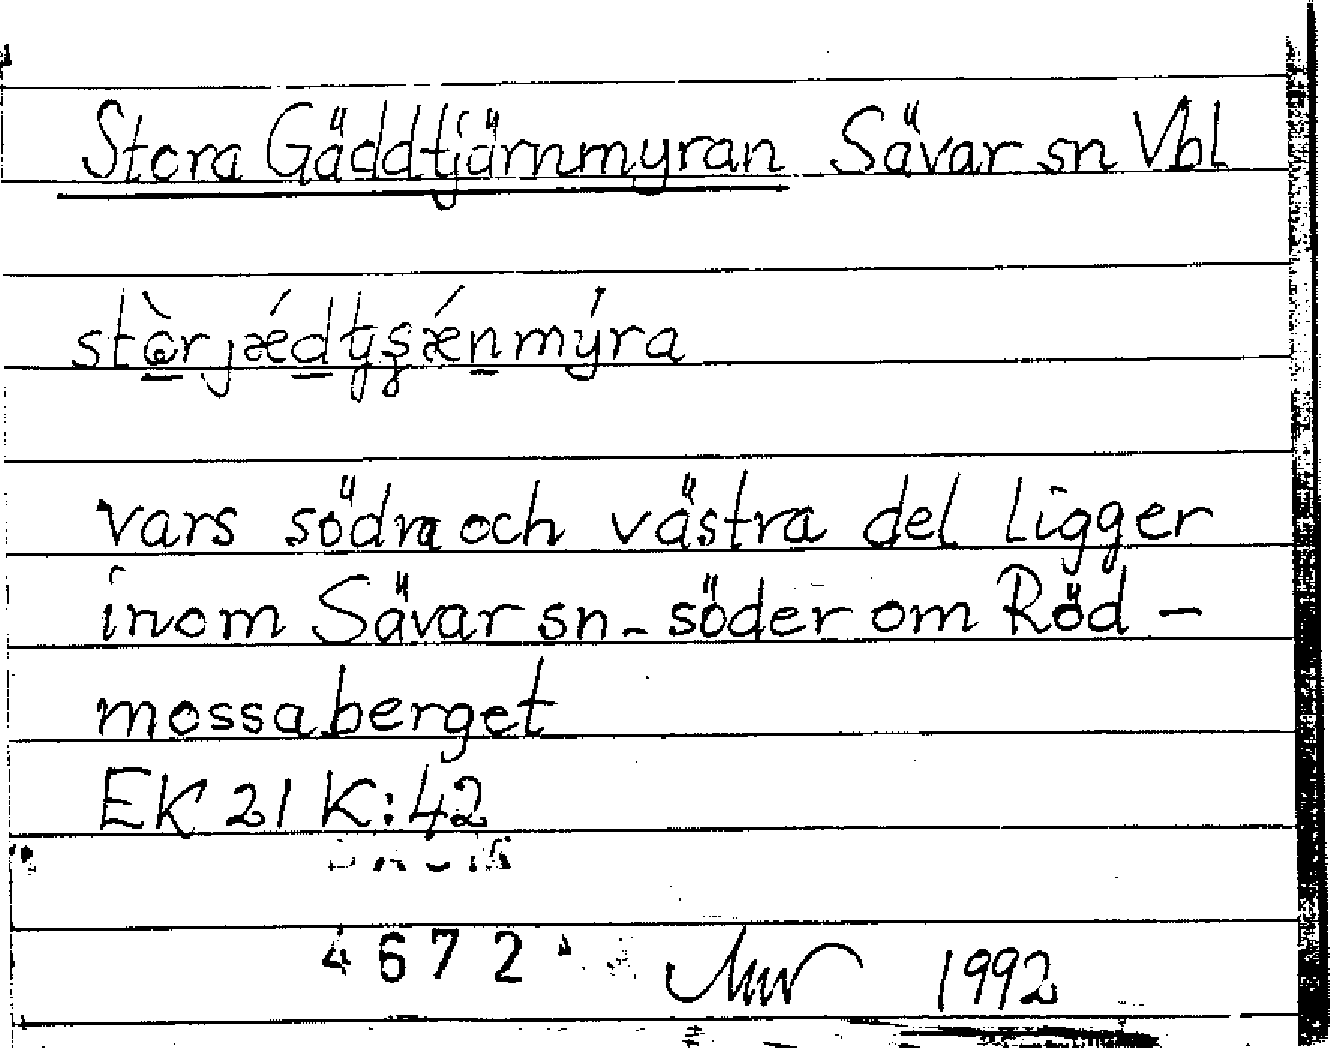 Stora Gäddtjärnmyran Sävar sn Vbl
stòrjǽdtşǽnmýra
vars södra och västra del ligger
inom Sävar sn - söder om Röd-
mossaberget
EK 21 K:42
4672
1992